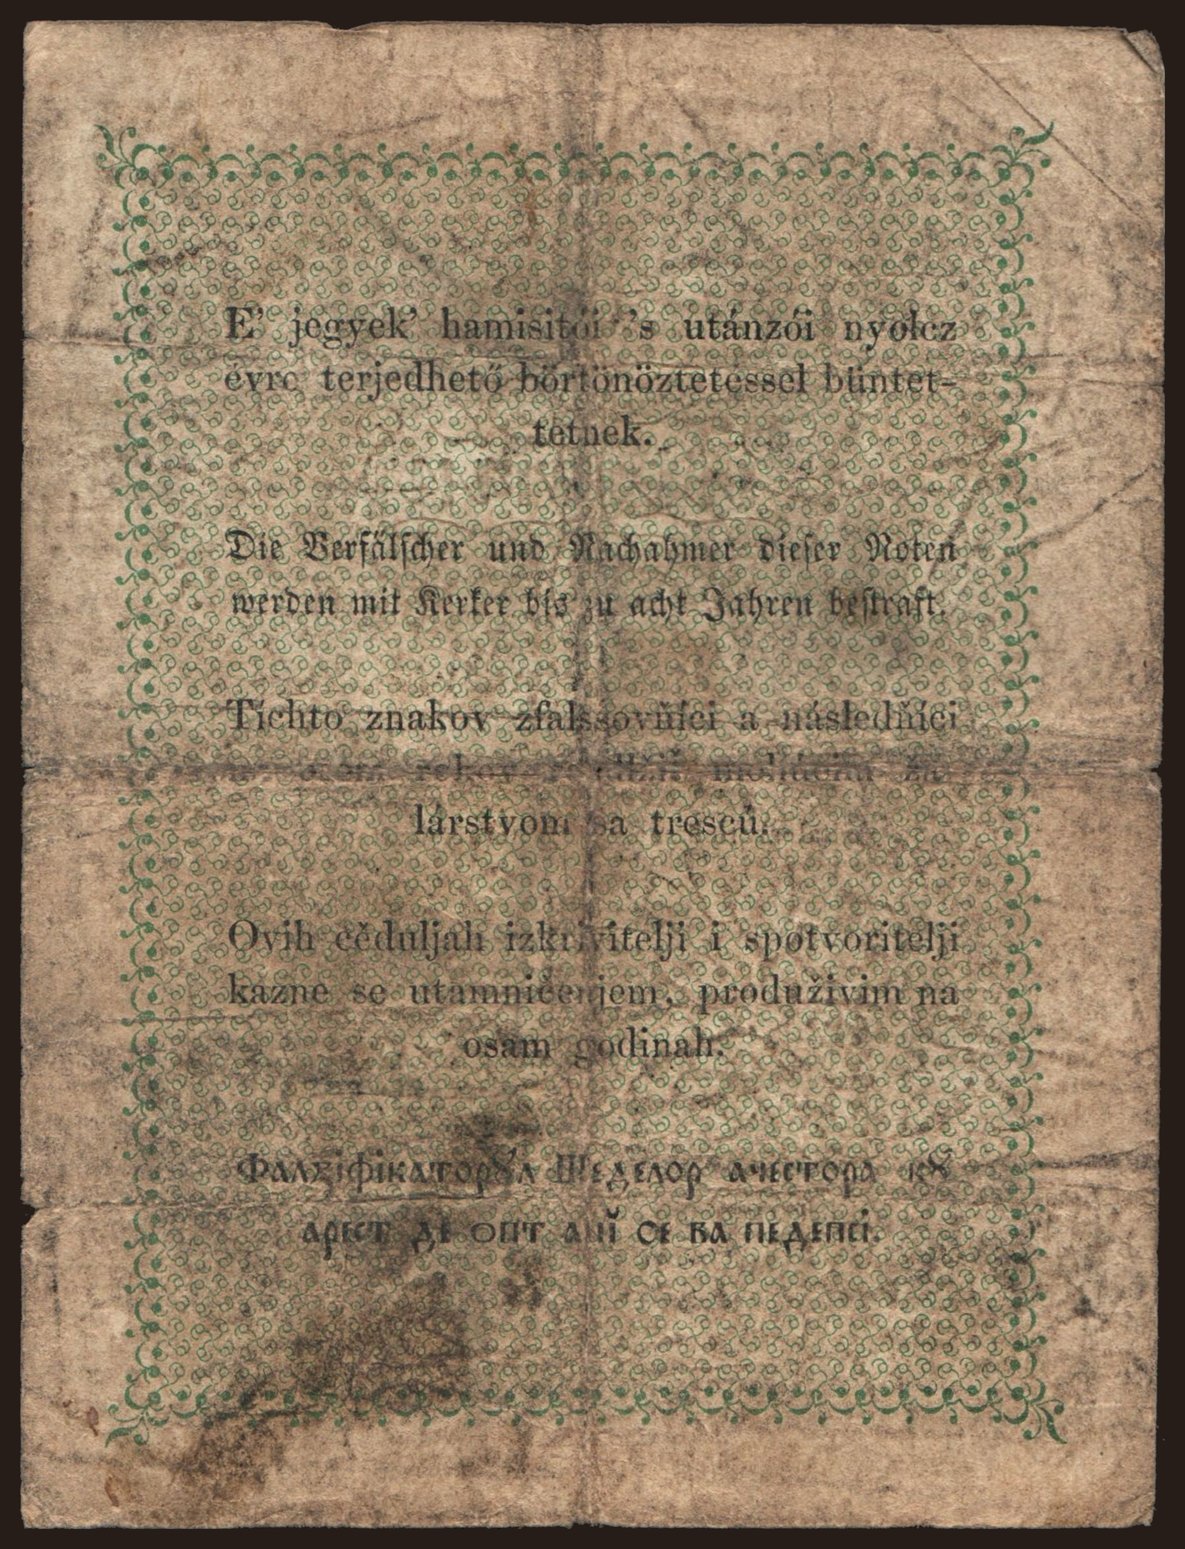 E' jegyek' hamisitói 's utánzói nyolcz
évre terjedhető börtönöztetéssel büntet-
tetnek.
Die Verfälscher und Nachahmer dieser Noten
werden mit Kerker bis zu acht Jahren bestraft.
Tíchto znakov zfalšovňíci a následňíci
rokov
lárstvom sa trescú.
Ovih cěduljah izkrivitelji i spotvoritelji
kazne se utamničenjem, produživim na
osam godinah.
Фалзіфікаторꙋл Шеделор ачестора кꙋ
арест де опт анӣ се ва педепсі.